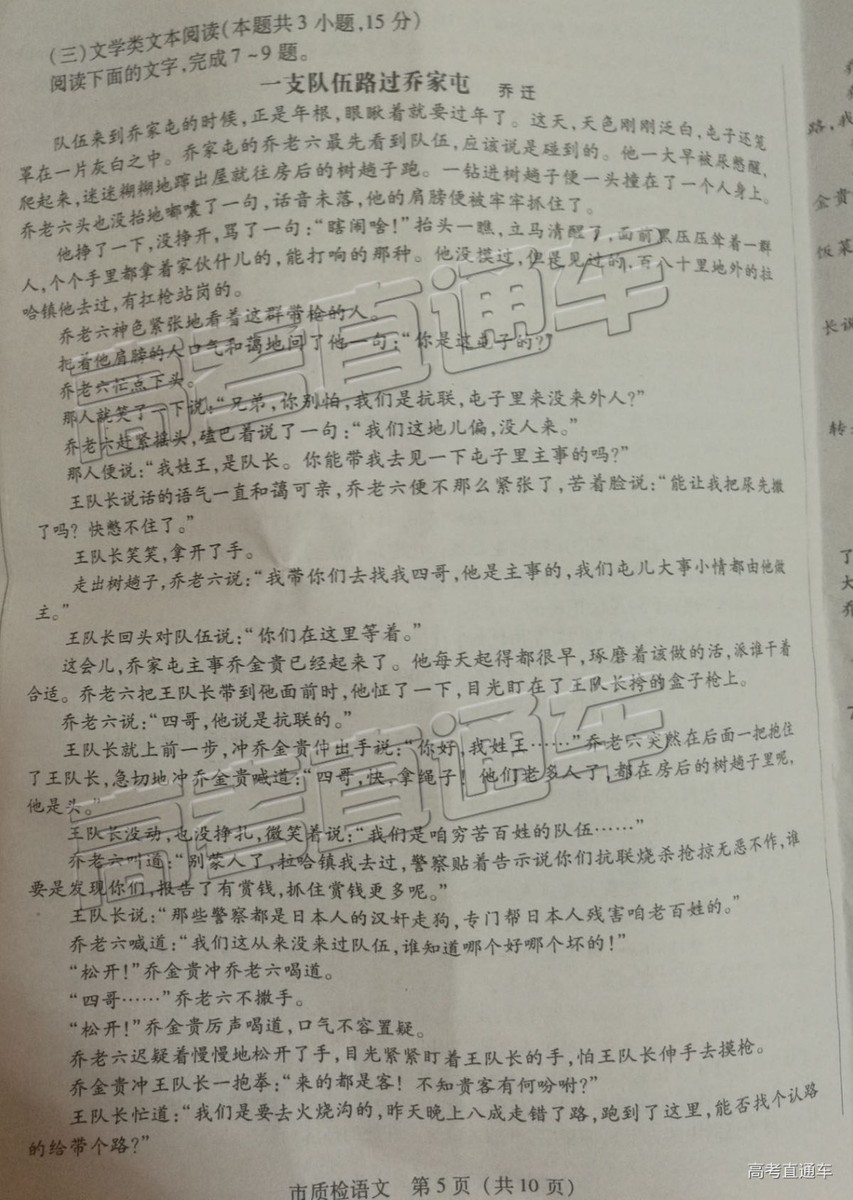 (三)文学类文本阅读(本题共3小题,15分)
阅读下面的文字,完成7~9题。
一支队伍路过乔家屯
乔 迁
队伍来到乔家屯的时候,正是年根,眼瞅着就要过年了。这天,天色刚刚泛白,屯子还笼
罩在一片灰白之中。乔家屯的乔老六最先看到队伍,应该说是碰到的。他一大早被尿憋醒,
爬起来,迷迷糊糊地蹿出屋就往房后的树趟子跑。一钻进树趟子便一头撞在了一个人身上。
乔老六头也没抬地嘟囔了一句,话音未落,他的肩膀便被牢牢抓住了。
他挣了一下,没挣开,骂了一句:“瞎闹啥!”抬头一瞧,立马清醒了,面前黑压压耸着一群
人,个个手里都拿着家伙什儿的,能打响的那种。他没摸过,但是见过的,百八十里地外的拉
哈镇他去过,有扛枪站岗的。
乔老六神色紧张地看着这群带枪的人。
把着他肩膀的人口气和蔼地问了他一句:“你是这屯子的?”
乔老六忙点下头。
那人就笑了一下说:“兄弟,你别怕,我们是抗联,屯子里来没来外人?”
乔老六赶紧摇头,磕巴着说了一句:“我们这地儿偏,没人来。”
那人便说:“我姓王,是队长。你能带我去见一下屯子里主事的吗?”
王队长说话的语气一直和蔼可亲,乔老六便不那么紧张了,苦着脸说:“能让我把尿先撒
了吗?快憋不住了。”
王队长笑笑,拿开了手。
走出树趟子,乔老六说:“我带你们去找我四哥,他是主事的,我们屯儿大事小情都由他做
主。”
王队长回头对队伍说:“你们在这里等着。”
这会儿,乔家屯主事乔金贵已经起来了。他每天起得都很早,琢磨着该做的活,派谁干着
合适。乔老六把王队长带到他面前时,他怔了一下,目光盯在了王队长挎的盒子枪上。
乔老六说:“四哥,他说是抗联的。”
王队长就上前一步,冲乔金贵伸出手说:“你好,我姓王……”乔老六突然在后面一把抱住
了王队长,急切地冲乔金贵喊道:“四哥,快,拿绳子!他们老多人了,都在房后的树趟子里呢,
他是头。”
王队长没动,也没挣扎,微笑着说:“我们是咱穷苦百姓的队伍……”
乔老六叫道:“别蒙人了,拉哈镇我去过,警察贴着告示说你们抗联烧杀抢掠无恶不作,谁
要是发现你们,报告了有赏钱,抓住赏钱更多呢。”
王队长说:“那些警察都是日本人的汉奸走狗,专门帮日本人残害咱老百姓的。”
乔老六喊道:“我们这从来没来过队伍,谁知道哪个好哪个坏的!”
“松开!”乔金贵冲乔老六喝道。
“四哥……”乔老六不撒手。
“松开!”乔金贵厉声喝道,口气不容置疑。
乔老六迟疑着慢慢地松开了手,目光紧紧盯着王队长的手,怕王队长伸手去摸枪。
乔金贵冲王队长一抱拳:“来的都是客!不知贵客有何吩咐?”
王队长忙道:“我们是要去火烧沟的,昨天晚上八成走错了路,跑到了这里,能否找个认路
的给带个路?”
市质检语文 第5页(共10页)
高考直通车
高考直通车
高考直通车
路,我
金贵
饭菜
长说
转
了
大
乔